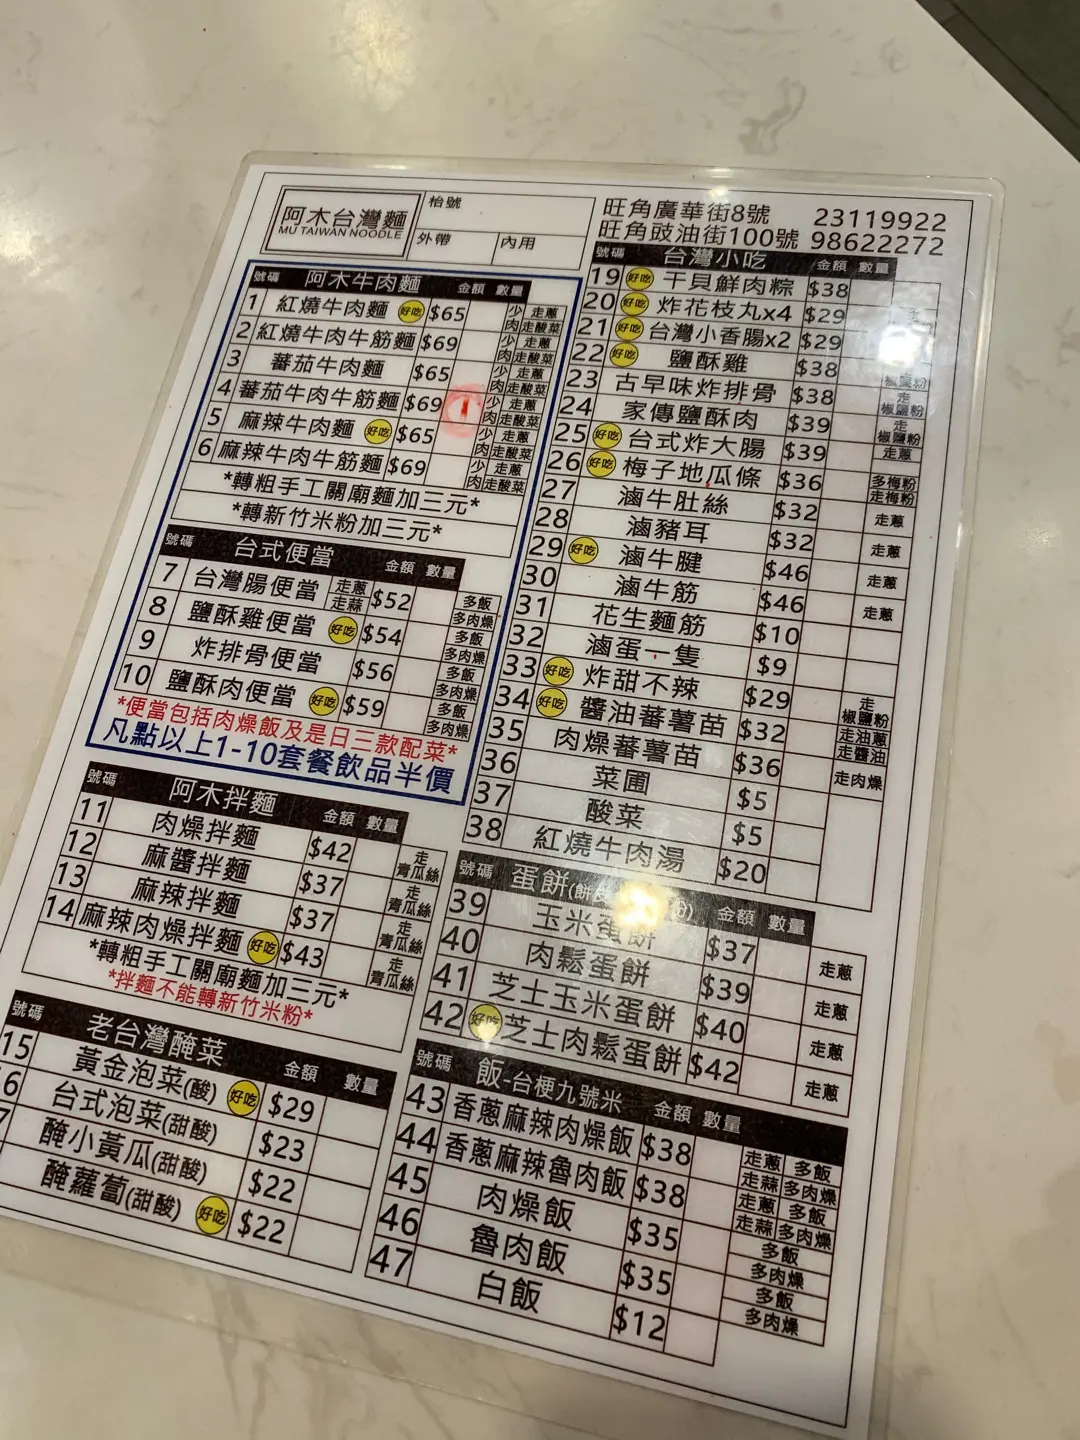 阿木台灣麵
MU TAIWAN NOODLE
枱號
外帶
內用
旺角廣華街8號 23119922
旺角豉油街100號 98622272
號碼 阿木牛肉麵 金額 數量
1 紅燒牛肉麵 好吃 $65 少肉 走蔥 走酸菜
2 紅燒牛肉牛筋麵 $69 少肉 走蔥 走酸菜
3 蕃茄牛肉麵 $65 少肉 走蔥 走酸菜
4 蕃茄牛肉牛筋麵 $69 少肉 走蔥 走酸菜
5 麻辣牛肉麵 好吃 $65 少肉 走蔥 走酸菜
6 麻辣牛肉牛筋麵 $69 少肉 走蔥 走酸菜
*轉粗手工關廟麵加三元*
*轉新竹米粉加三元*
號碼 台式便當 金額 數量
7 台灣腸便當 走蔥 走蒜 $52 多飯 多肉燥
8 鹽酥雞便當 好吃 $54 多飯 多肉燥
9 炸排骨便當 $56 多飯 多肉燥
10 鹽酥肉便當 好吃 $59 多飯 多肉燥
*便當包括肉燥飯及是日三款配菜*
凡點以上1-10套餐飲品半價
號碼 阿木拌麵 金額 數量
11 肉燥拌麵 $42 走青瓜絲
12 麻醬拌麵 $37 走青瓜絲
13 麻辣拌麵 $37 走青瓜絲
14 麻辣肉燥拌麵 好吃 $43 走青瓜絲
*轉粗手工關廟麵加三元*
*拌麵不能轉新竹米粉*
號碼 老台灣醃菜 金額 數量
15 黃金泡菜(酸) 好吃 $29
6 台式泡菜(甜酸) $23
7 醃小黃瓜(甜酸) $22
醃蘿蔔(甜酸) 好吃 $22
號碼 台灣小吃 金額 數量
19 好吃 干貝鮮肉粽 $38
20 好吃 炸花枝丸x4 $29
21 好吃 台灣小香腸x2 $29
22 好吃 鹽酥雞 $38 椒鹽粉
23 古早味炸排骨 $38 走椒鹽粉
24 家傳鹽酥肉 $39 走椒鹽粉
25 好吃 台式炸大腸 $39 走蔥
26 好吃 梅子地瓜條 $36 多梅粉 走梅粉
27 滷牛肚絲 $32 走蔥
28 滷豬耳 $32 走蔥
29 好吃 滷牛腱 $46 走蔥
30 滷牛筋 $46 走蔥
31 花生麵筋 $10
32 滷蛋一隻 $9
33 好吃 炸甜不辣 $29 走椒鹽粉
34 好吃 醬油蕃薯苗 $32 走油蔥 走醬油
35 肉燥蕃薯苗 $36 走肉燥
36 菜圃 $5
37 酸菜 $5
38 紅燒牛肉湯 $20
號碼 蛋餅(餅 金額 數量
39 玉米蛋餅 $37 走蔥
40 肉鬆蛋餅 $39 走蔥
41 芝士玉米蛋餅 $40 走蔥
42 好吃 芝士肉鬆蛋餅 $42 走蔥
號碼 飯-台梗九號米 金額 數量
43 香蔥麻辣肉燥飯 $38 走蔥 走蒜 多飯 多肉燥
44 香蔥麻辣魯肉飯 $38 走蔥 走蒜 多飯 多肉燥
45 肉燥飯 $35 多飯 多肉燥
46 魯肉飯 $35 多飯 多肉燥
47 白飯 $12